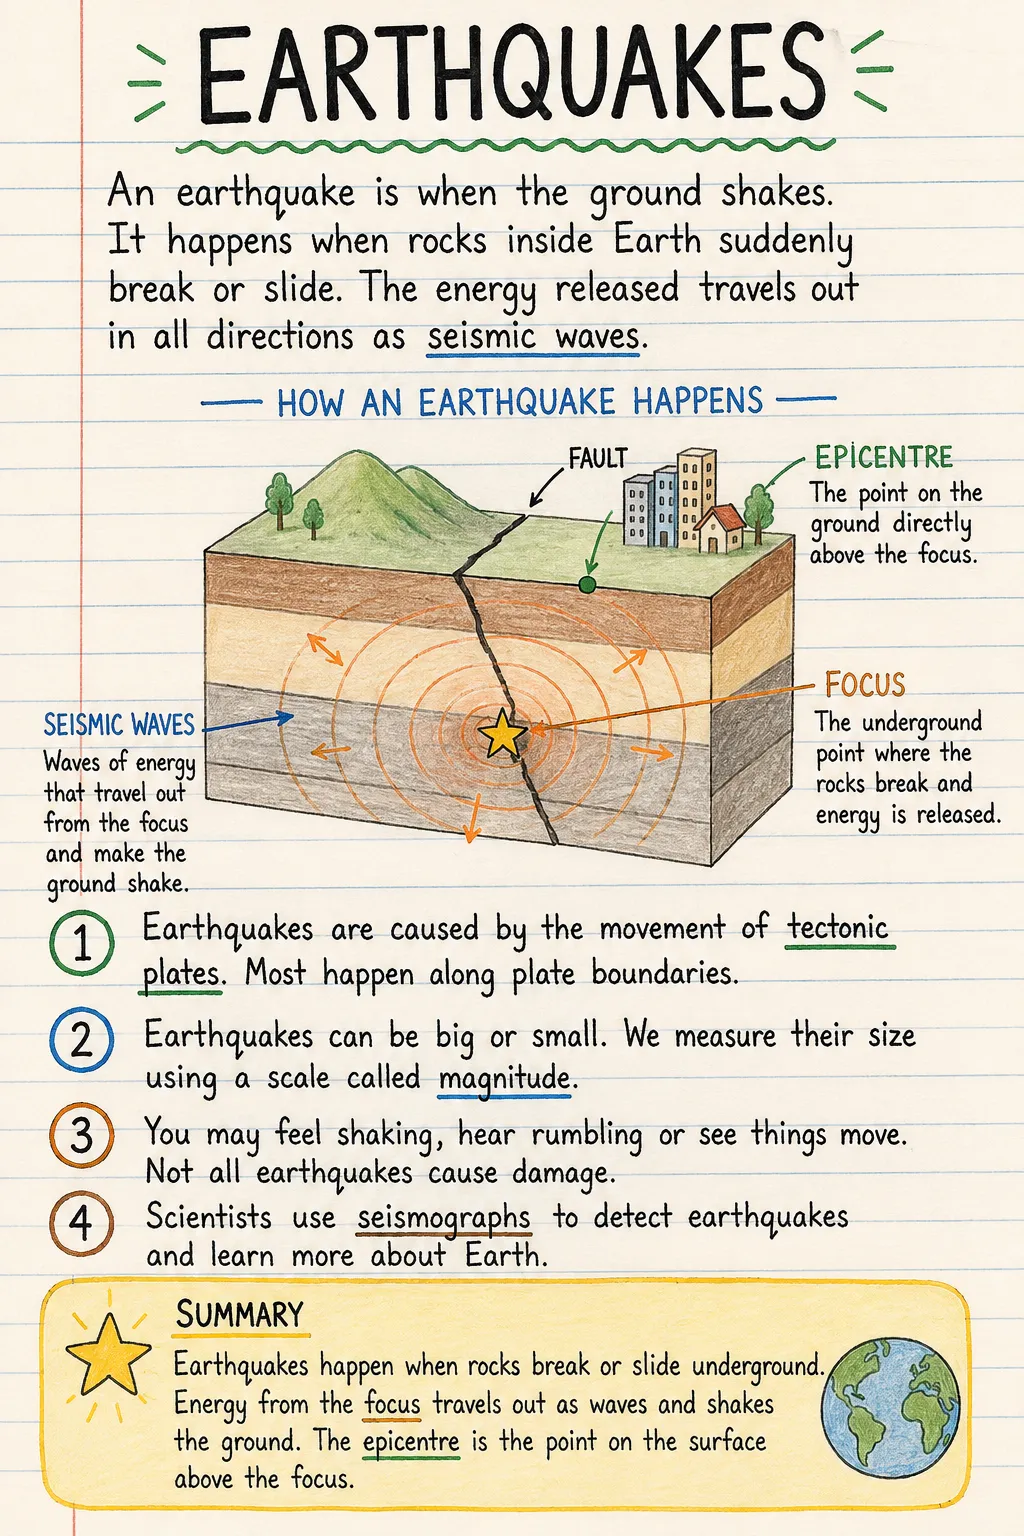 EARTHQUAKES
An earthquake is when the ground shakes.
It happens when rocks inside Earth suddenly
break or slide. The energy released travels out
in all directions as seismic waves.
HOW AN EARTHQUAKE HAPPENS
FAULT
EPICENTRE
The point on the
ground directly
above the focus.
FOCUS
The underground
point where the
rocks break and
energy is released.
SEISMIC WAVES
Waves of energy
that travel out
from the focus
and make the
ground shake.
1 Earthquakes are caused by the movement of tectonic
plates. Most happen along plate boundaries.
2 Earthquakes can be big or small. We measure their size
using a scale called magnitude.
3 You may feel shaking, hear rumbling or see things move.
Not all earthquakes cause damage.
4 Scientists use seismographs to detect earthquakes
and learn more about Earth.
SUMMARY
Earthquakes happen when rocks break or slide underground.
Energy from the focus travels out as waves and shakes
the ground. The epicentre is the point on the surface
above the focus.